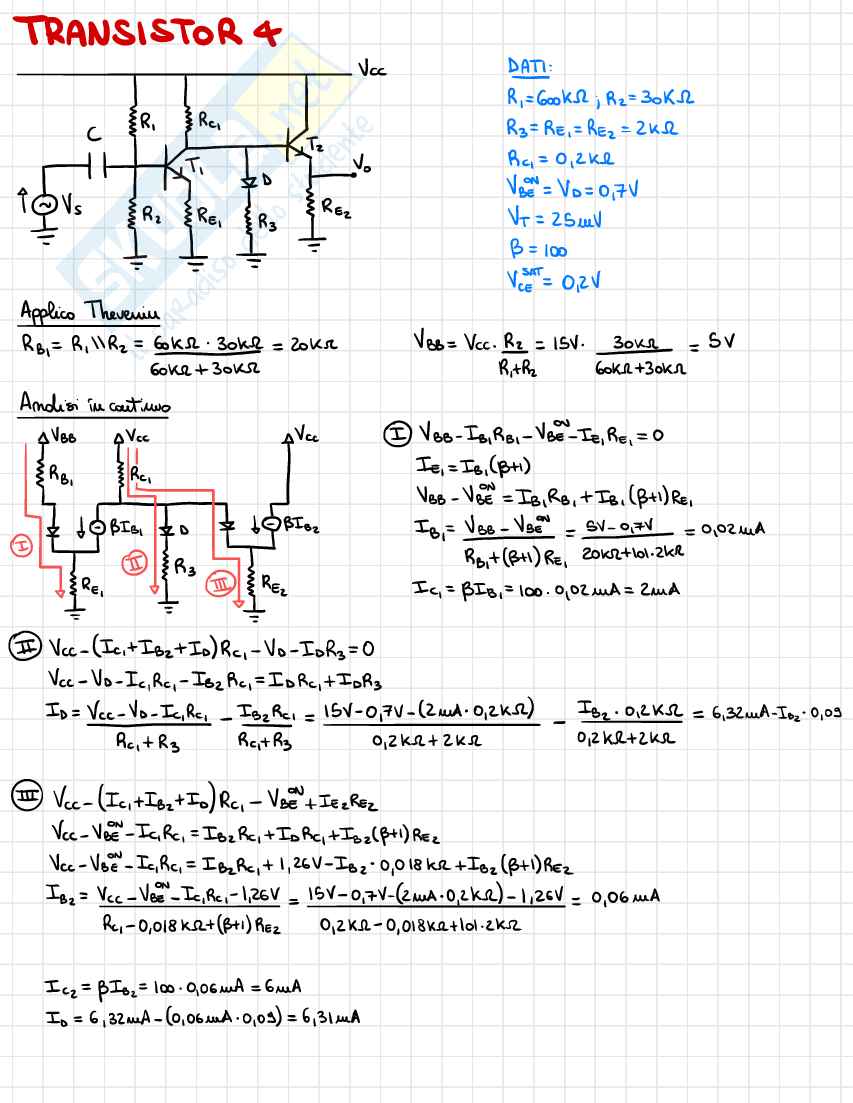 TRANSISTOR 4
Vcc
R1
RC1
C
T1
T2
Vo
D
Vs
R2
RE1
R3
RE2
DATI:
R1=600KΩ ; R2=30KΩ
R3=RE1=RE2=2KΩ
RC1=0,2KΩ
VBE^ON=VD=0,7V
VT=25mV
β=100
VCE^SAT=0,2V
Applico Thevenin
RB1=R1//R2= 60KΩ·30KΩ / 60KΩ+30KΩ = 20KΩ
VBB=Vcc· R2 / R1+R2 = 15V· 30KΩ / 60KΩ+30KΩ = 5V
Analisi in continua
VBB
Vcc
Vcc
RB1
RC1
βIB1
D
βIB2
I
II
R3
III
RE1
RE2
I VBB-IB1RB1-VBE^ON-IE1RE1=0
IE1=IB1(β+1)
VBB-VBE^ON=IB1RB1+IB1(β+1)RE1
IB1= VBB-VBE^ON / RB1+(β+1)RE1 = 5V-0,7V / 20KΩ+101·2KΩ = 0,02mA
IC1=βIB1=100·0,02mA=2mA
II Vcc-(IC1+IB2+ID)RC1-VD-IDR3=0
Vcc-VD-IC1RC1-IB2RC1=IDRC1+IDR3
ID= Vcc-VD-IC1RC1 / RC1+R3 - IB2RC1 / RC1+R3 = 15V-0,7V-(2mA·0,2KΩ) / 0,2KΩ+2KΩ - IB2·0,2KΩ / 0,2KΩ+2KΩ = 6,32mA-IB2·0,09
III Vcc-(IC1+IB2+ID)RC1-VBE^ON+IE2RE2
Vcc-VBE^ON-IC1RC1=IB2RC1+IDRC1+IB2(β+1)RE2
Vcc-VBE^ON-IC1RC1=IB2RC1+1,26V-IB2·0,018KΩ+IB2(β+1)RE2
IB2= Vcc-VBE^ON-IC1RC1-1,26V / RC1-0,018KΩ+(β+1)RE2 = 15V-0,7V-(2mA·0,2KΩ)-1,26V / 0,2KΩ-0,018KΩ+101·2KΩ = 0,06mA
IC2=βIB2=100·0,06mA=6mA
ID=6,32mA-(0,06mA·0,09)=6,31mA